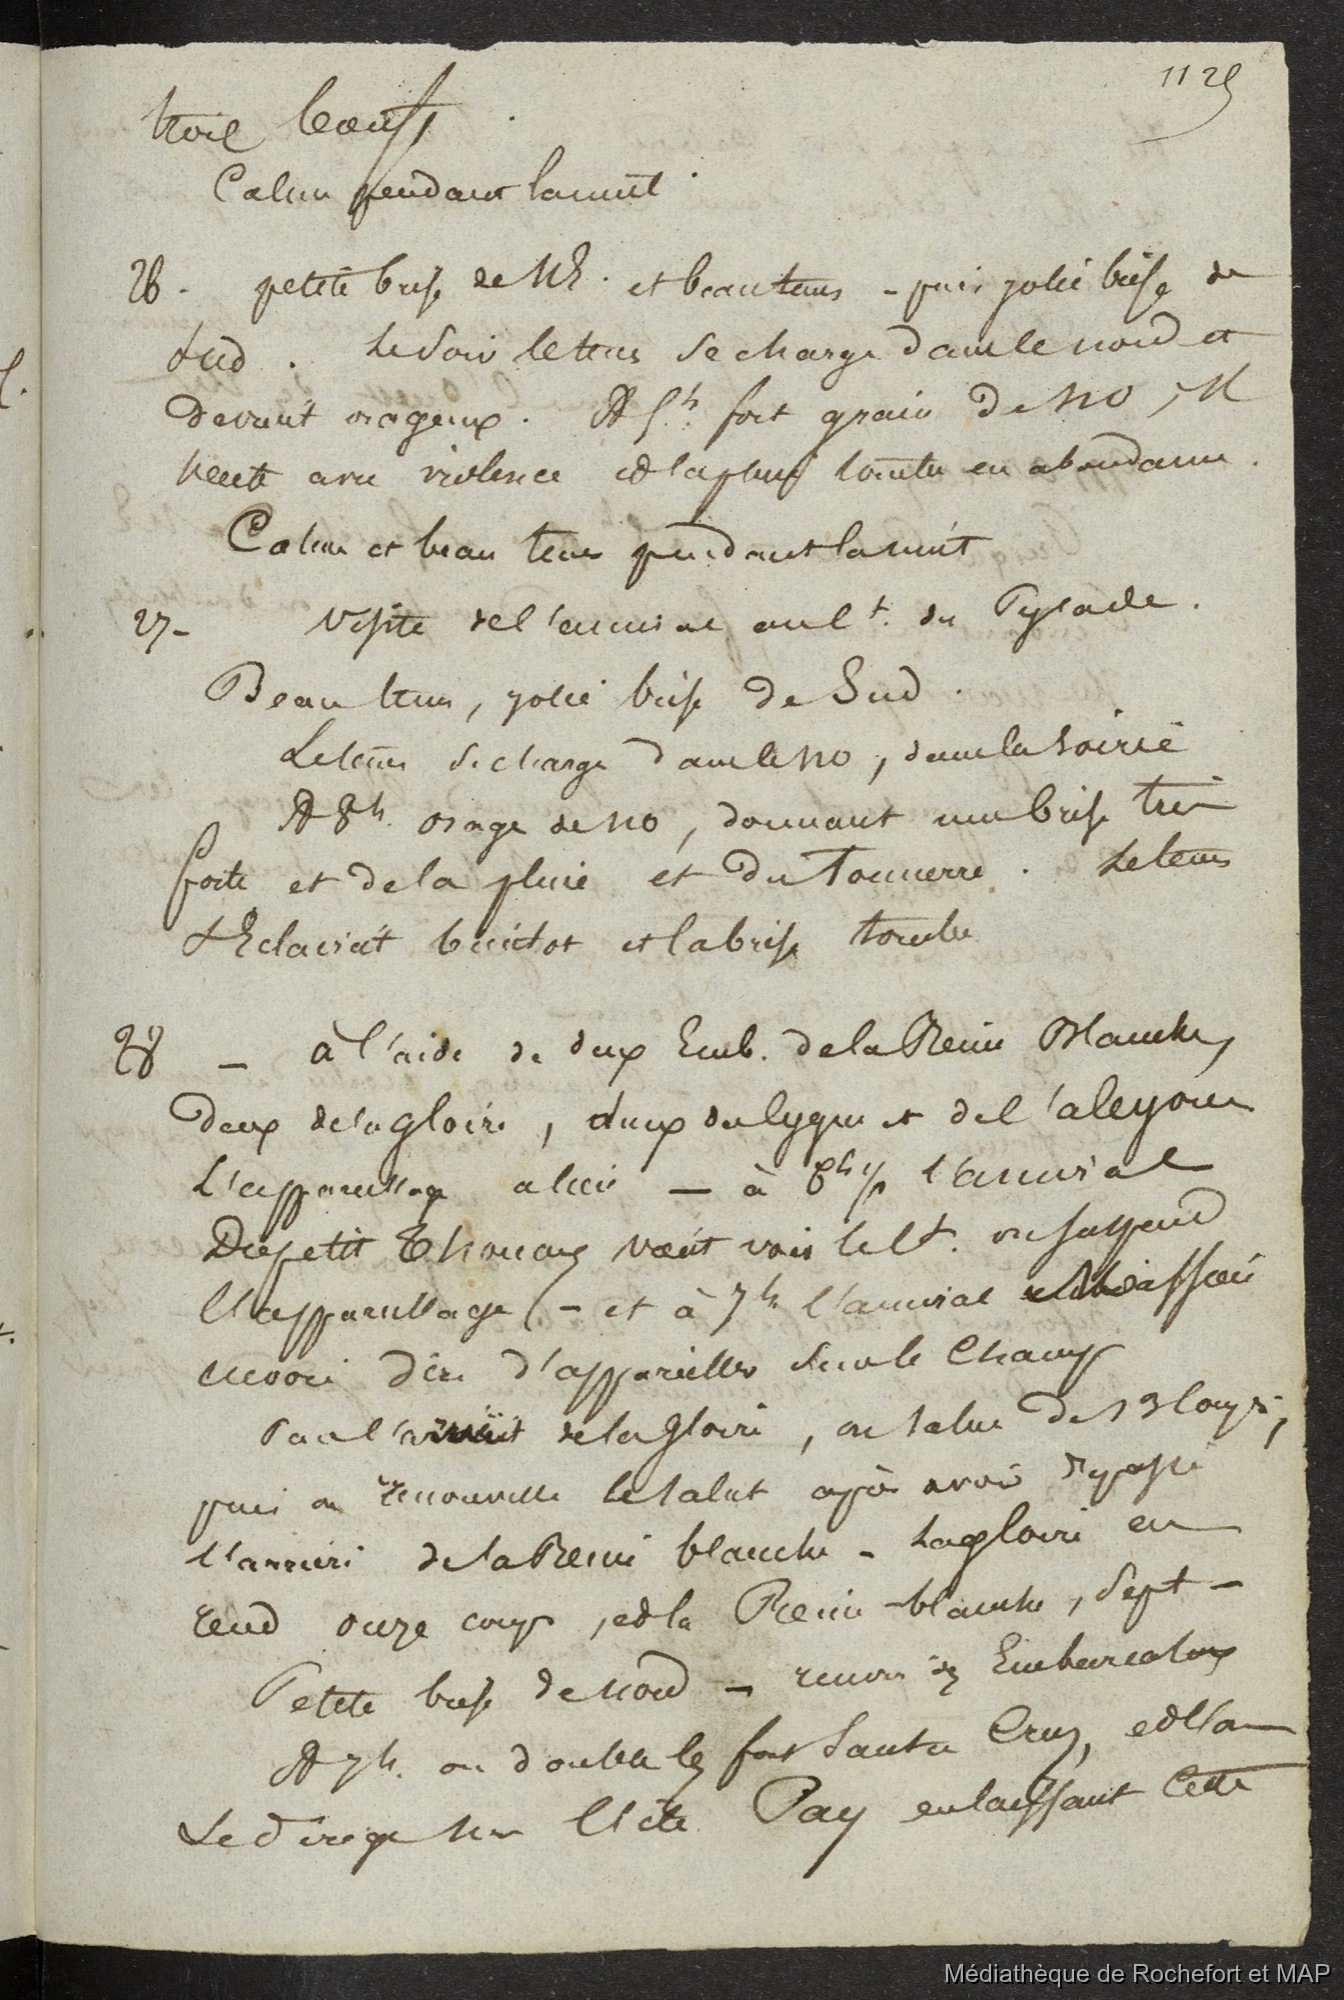 1125
trois bœufs.
Calme pendant la nuit.
26. petite brise de NE. et beau tems - puis jolie brise de
Sud. Le Soir le tems se charge dans le nord et
devient orageux. A 5h. fort grain de NO, il
vente avec violence et la pluie tombe en abondance.
Calme et beau tems pendant la nuit
27- visite de l'amiral au lt. du Pylade.
Beau tems, jolie brise de Sud.
Le tems se charge dans le NO, dans la soirée
A 8h. orage de NO, donnant une brise très
forte et de la pluie et du Tonnerre. Le tems
s'Eclaircit bientot et la brise tombe
28 - à l'aide de deux Emb. de la Reine Blanche,
deux de la gloire, deux du et de l'alcyone
L'appareillage a lieu - à 6h 1/2 l'amiral
Dupetit Thouars vient voir le lt. on suspend
l'appareillage (- et à 7h l'amiral
envoie dire d'appareiller sur le Champ
Par l'avant de la Gloire, on salue de 13 coups,
puis on renouvelle le salut après avoir passé
l'arrière de la Reine blanche - la gloire en
rend onze coups, et la Reine-blanche, Sept -
Petite brise de nord - renvoi des Embarcations
A 7h. on double le fort Santa Cruz, et l'on
se dirige sur l'ile Pay en laissant Cette
Médiathèque de Rochefort et MAP